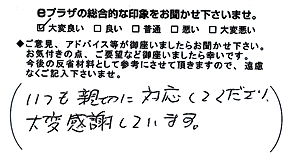 eプラザの総合的な印象をお聞かせ下さいませ。
☑大変良い □良い □普通 □悪い □大変悪い
◆ご意見、アドバイス等が御座いましたらお聞かせ下さい。
お気付きの点、ご要望など御座いましたら幸いです。
今後の反省材料として参考にさせて頂きますので、遠慮
なくご記入下さいませ。
いつも親切に対応してくださり、
大変感謝しています。